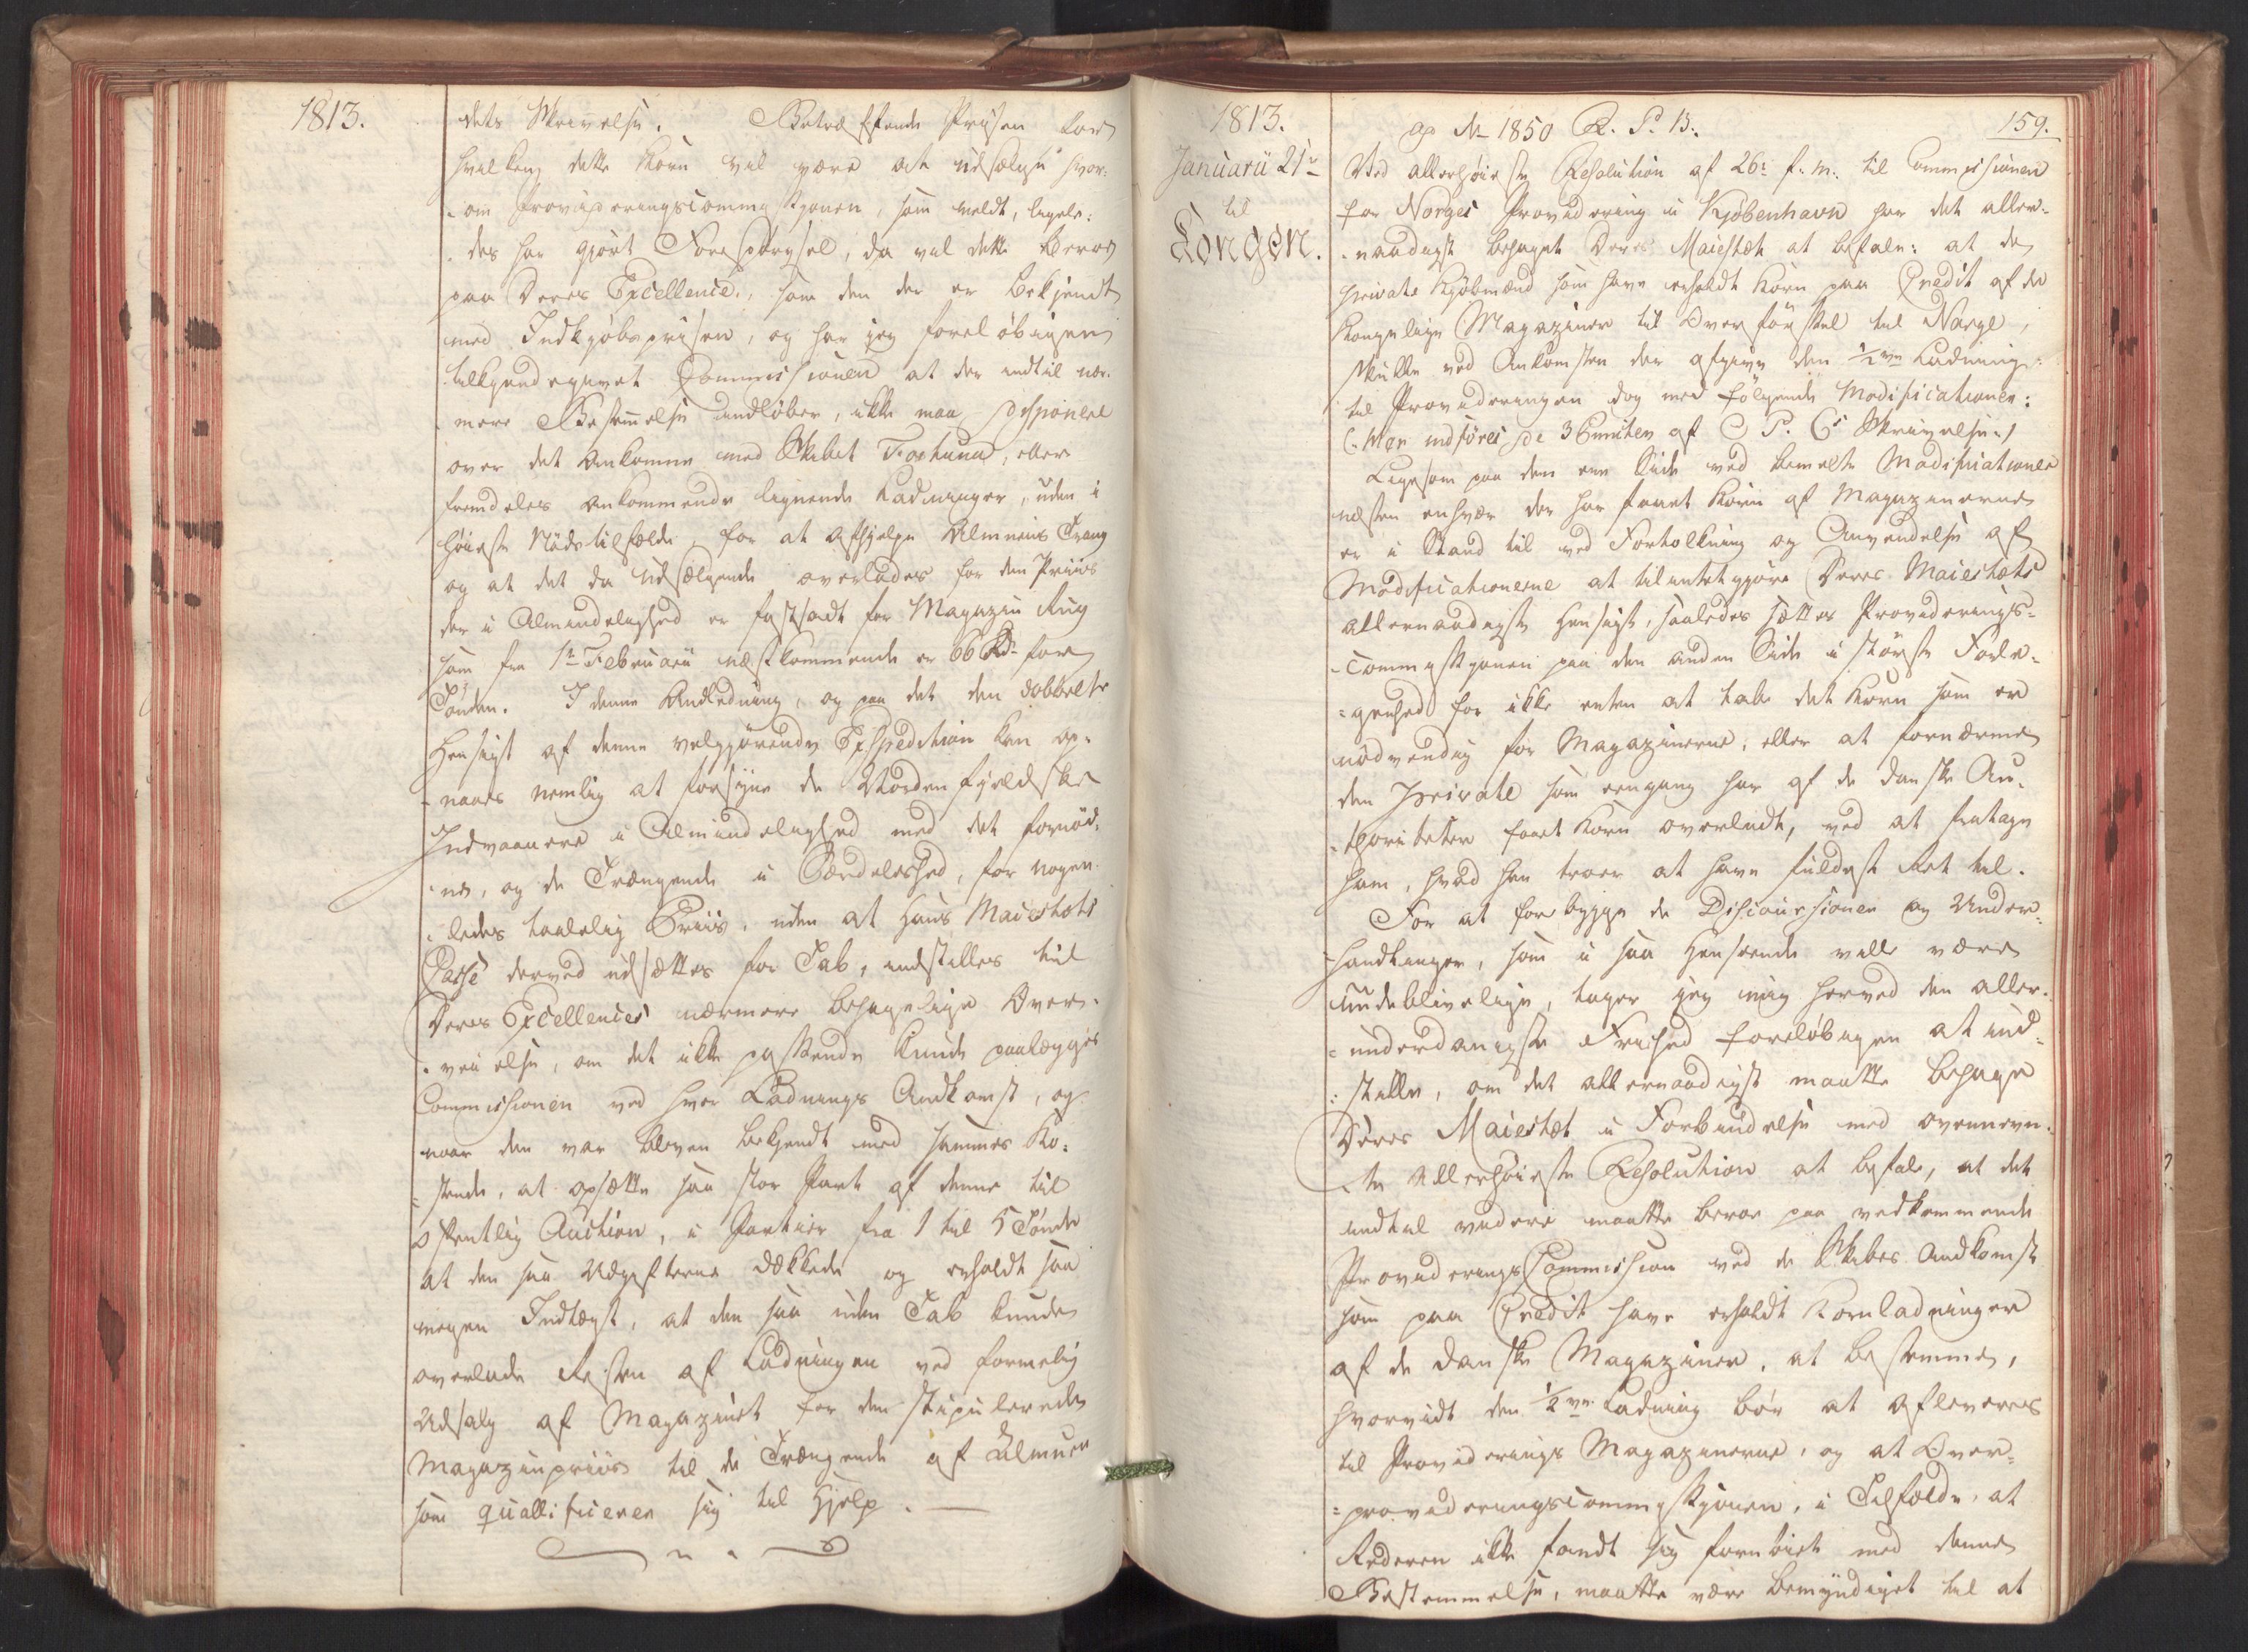 1813.
dets Skrivelse. Betræffende Prisen for
hvilken dette Korn vil være at udsælge hvor-
om Provideringscommisjonen, som meldt, ligele-
des har gjort Forespørgsel, da vil dette beroe
paa Deres Excellence, som den der er bekjendt
med Indkjøbsprisen, og har jeg foreløbigen
tilkjendegivet Commissionen at der indtil nær-
mere Bestemmelse indløber, ikke maa disponere
over det ankomne med Skibet Fortuna, eller
fremdeles ankommende lignende Ladninger, uden i
høieste Nødstilfælde, for at afhjelpe Almuens Trang
og at det da udsælgende overlades for den Priis
der i Almindelighed er fastsadt for Magazin Rug
som fra 1te Februarii næstkommende er 66 Rd for
Tønden. I denne Anledning, og paa det den dobbelte
Hensigt af denne velgjørende Expedition kan op-
naaes nemlig at forsyne de Nordenfjeldske
Indvaanere i Almindelighed med det fornød-
ne, og de Trængende i Særdeleshed, for nogen-
ledes taalelig Priis, uden at Hans Maiestæts
Casse derved udsættes for Tab, indstilles til
Deres Excellences nærmere behagelige Over-
veielse, om det ikke passende kunde paalægges
Commissionen ved hver Ladnings Ankomst, og
naar den var bleven bekjendt med sammes Ko-
stende, at opsætte saa stor Part af denne til
offentlig Auction, i Partier fra 1 til 5 Tønde
at den saa Udgifterne dækkede og erholdt saa
megen Indtægt, at den saa uden Tab kunde
overlade Resten af Ladningen ved formelig
Udsalg af Magazinet for den stipulerede
Magazinpriis til de Trængende af Almuen
som qualificerer sig til Hjelp.
1813.
Januarii 21de
til
Kongen.
159.
ap No 1850 R. P. B.
Ved allerhøieste Resolution af 26de f. M. til Commissionen
for Norges Providering i Kjøbenhavn har det aller-
naadigst behaget Deres Maiestæt at befale: at de
private Kjøbmænd som have erholdt Korn paa Credit af de
Kongelige Magaziner til Overførsel til Norge,
skulle ved Ankomsten der afgive den 1/2ve Ladning
til Provideringen dog med følgende Modificationer:
(: Her indføres de 3 Puncter af C. P. Cs Skrivelse :)
Ligesom paa den ene Side ved bemelte Modificationer
næsten enhver der har faaet Korn af Magazinerne
er i Stand til ved Fortolkning og Anvendelse af
Modificationerne at tilintetgjøre Deres Maiestæts
allernaadigste Hensigt, saaledes sættes Providerings-
commissjonen paa den anden Side i største Forle-
genhed for ikke enten at tabe det Korn som er
nødvendig for Magazinerne, eller at fornærme
den Private som eengang har af de danske Au-
thoriteter faaet Korn overladt, ved at fratage
ham, hvad han troer at have fuldest Ret til.
For at forebygge de Discussioner og Under-
handlinger, som i saa Henseende ville være
uudeblivelige, tager jeg mig herved den aller-
underdanigste Frihed foreløbigen at ind-
stille, om det allernaadigst maatte behage
Deres Maiestæt i Forbindelse med ovennevn-
te Allerhøieste Resolution at befale, at det
indtil videre maatte beroe paa vedkommende
ProvideringsCommission ved de Skibes Ankomst
som paa Credit have erholdt Kornladninger
af de danske Magaziner, at bestemme,
hvorvidt den 1/2ve Ladning bør at afleveres
til Providerings Magazinerne, og at Over-
provideringscommissjonen, i Tilfælde, at
Rederen ikke fandt sig fornøiet med denne
Bestemmelse, maatte være bemyndiget til at